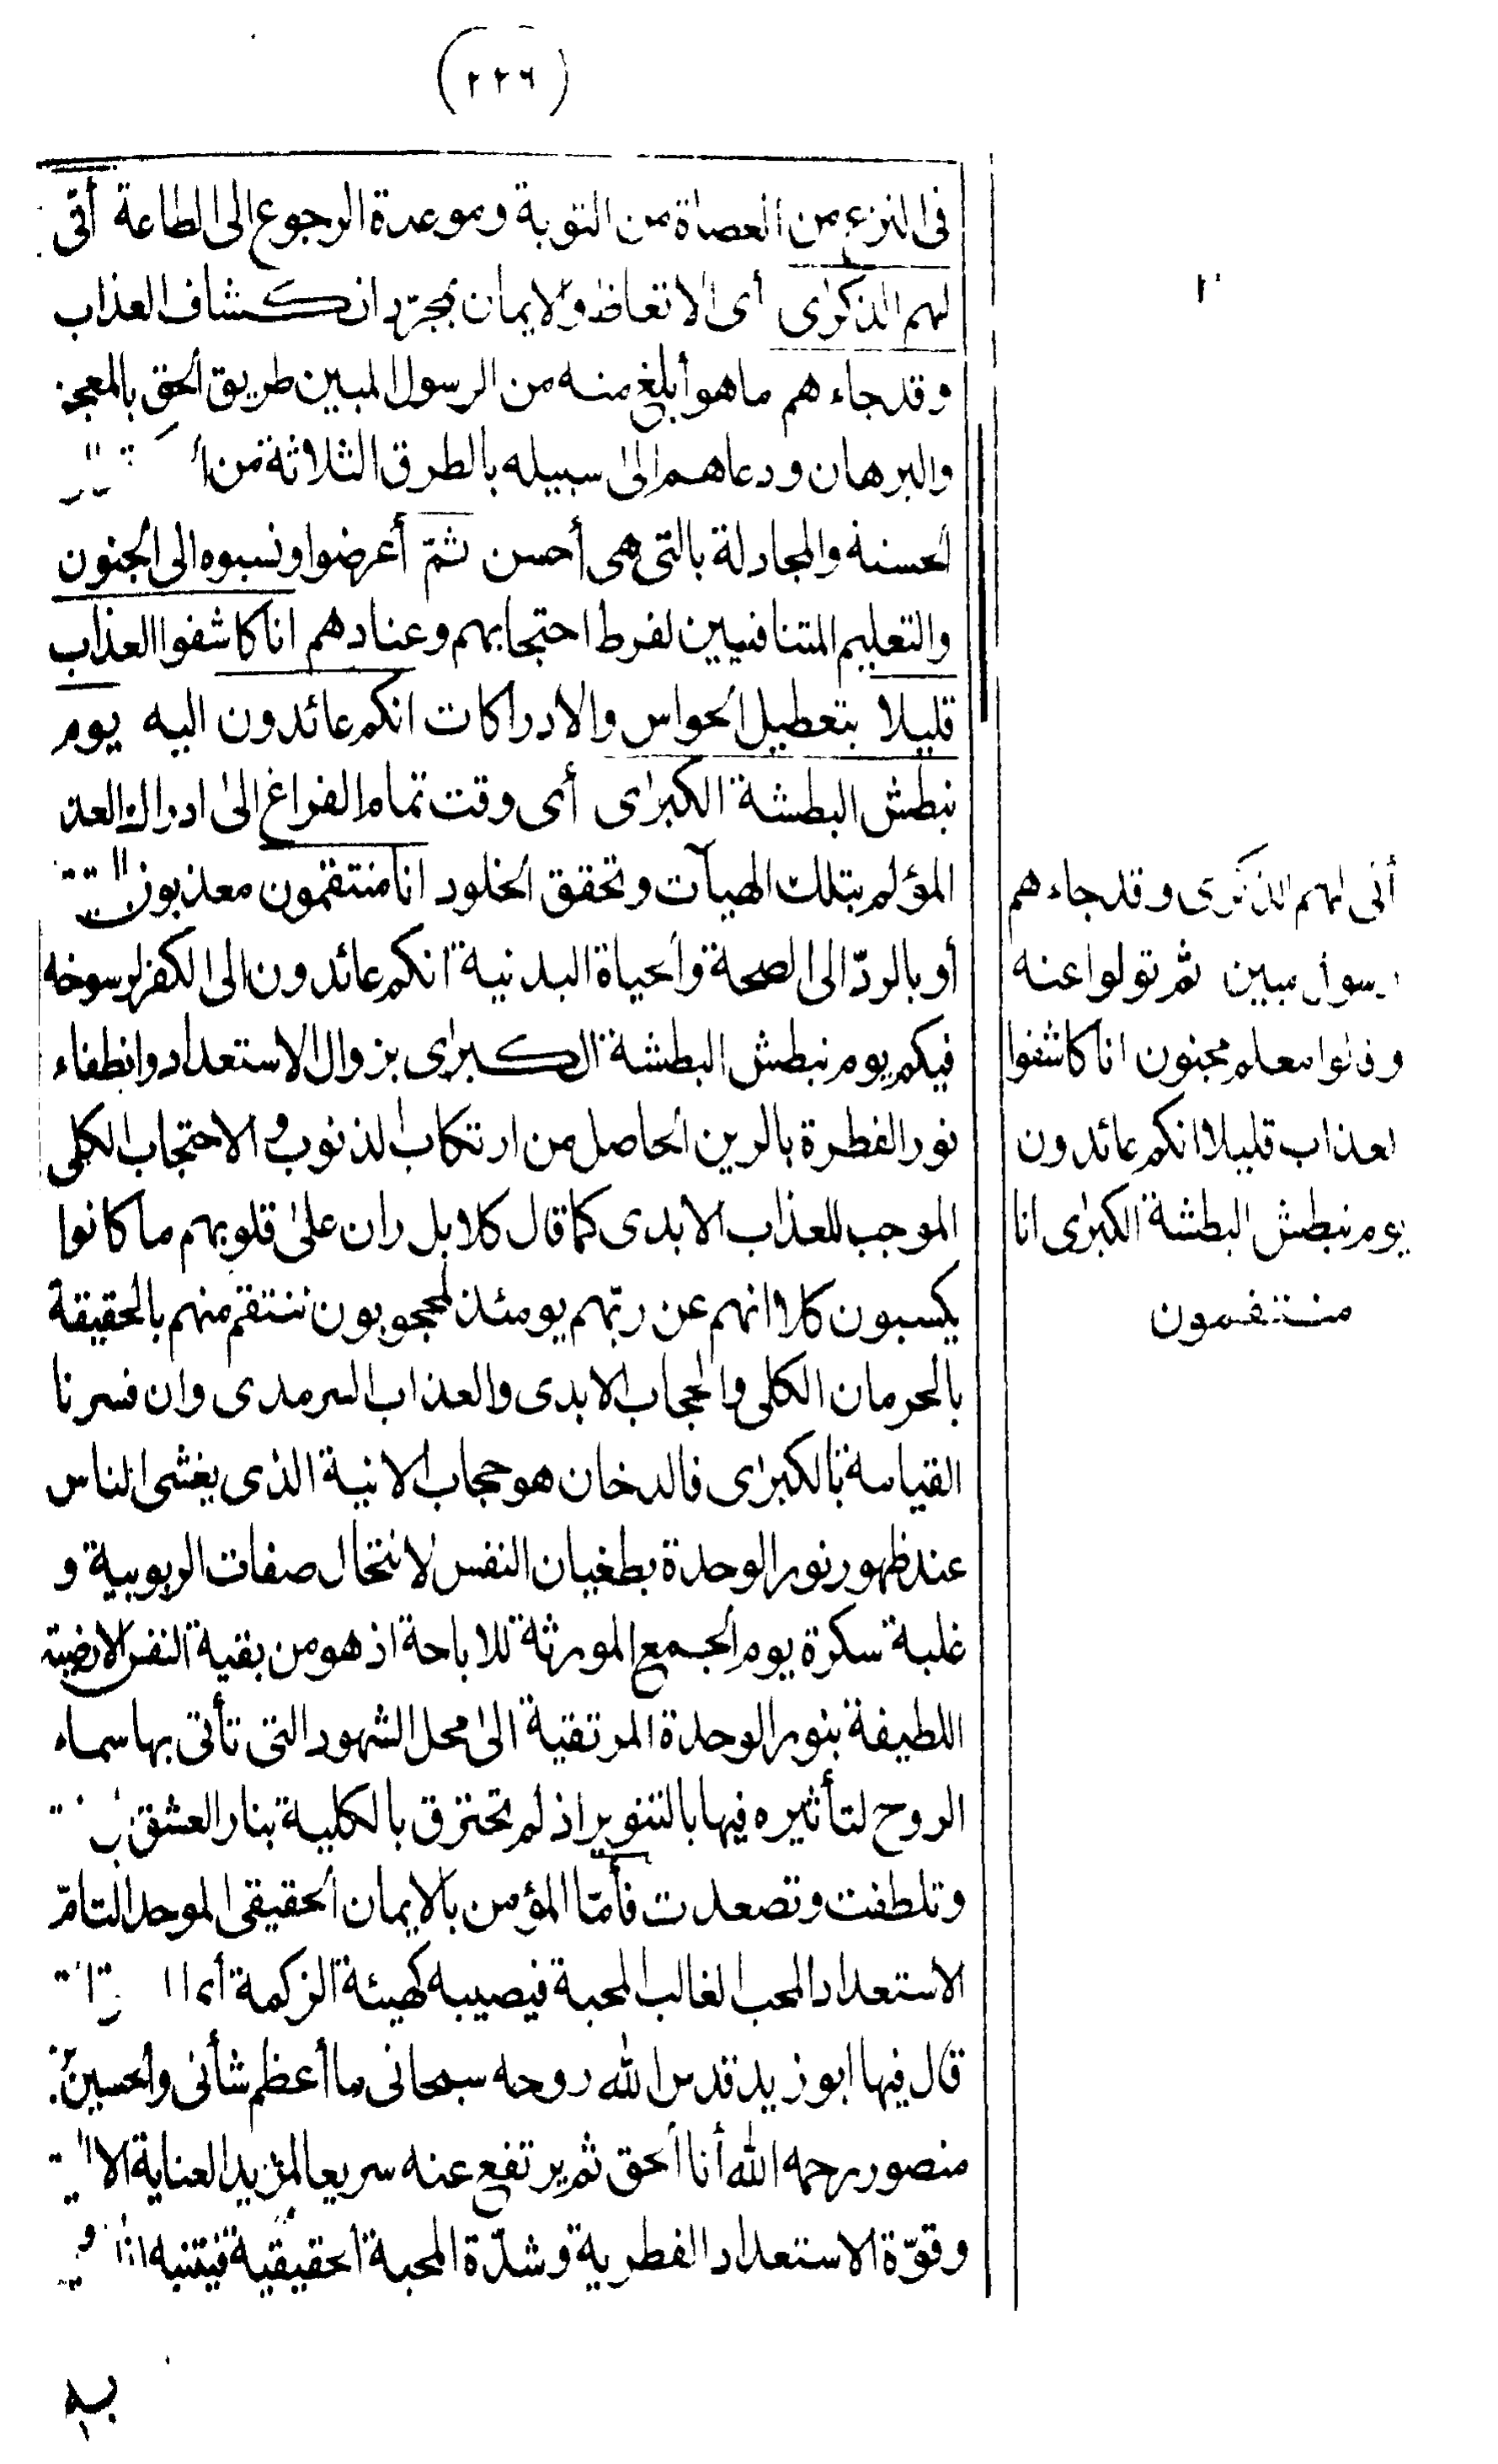 (٢٢٦)
فى النزع من العصاة من التوبة وموعدة الرجوع الى الطاعة أنى
لهم الذكرى أى الاتعاظ والايمان بمجرّد انكشاف العذاب
وقد جاءهم ما هو أبلغ منه من الرسول المبين طريق الحق بالمعجز
والبرهان ودعاهم الى سبيله بالطرق الثلاثة من
الحسنة والمجادلة بالتى هى أحسن ثمّ أعرضوا ونسبوه الى الجنون
والتعليم المتنافيين لفرط احتجابهم وعنادهم انا كاشفوا العذاب
قليلا بتعطيل الحواس والادراكات انكم عائدون اليه يوم
نبطش البطشة الكبرى أى وقت تمام الفراغ الى ادراك العذ
المؤلم بتلك الهيآت وتحقق الخلود انا منتقمون معذبون
أو بالردّ الى الصحة والحياة البدنية انكم عائدون الى الكفر لرسوخه
فيكم يوم نبطش البطشة الكبرى بزوال الاستعداد وانطفاء
نور الفطرة بالرين الحاصل من ارتكاب الذنوب والاحتجاب الكلى
الموجب للعذاب الابدى كما قال كلا بل ران على قلوبهم ما كانوا
يكسبون كلا انهم عن ربّهم يومئذ لمحجوبون ننتقم منهم بالحقيقة
بالحرمان الكلى والحجاب الابدى والعذاب السرمدى وان فسرنا
القيامة بالكبرى فالدخان هو حجاب الانية الذى يغشى الناس
عند ظهور نور الوحدة بطغيان النفس لانتحال صفات الربوبية و
غلبة سكرة يوم الجمع المورثة للاباحة اذ هو من بقية النفس الارضية
اللطيفة بنور الوحدة المرتقية الى محل الشهود التى تأتى بها سماء
الروح لتأثيره فيها بالتنوير اذ لم تحترق بالكلية بنار العشق
وتلطفت وتصعدت فأمّا المؤمن بالايمان الحقيقى الموحد التامّ
الاستعداد المحب الغالب المحبة فيصيبه كهيئة الزكمة أى
قال فيها ابو زيد قدس الله روحه سبحانى ما أعظم شأنى والحسين
منصور رحمه الله أنا الحق ثم يرتفع عنه سريعا لمزيد العناية
وقوّة الاستعداد الفطرية وشدّة المحبة الحقيقية فيتنبه
أنى لهم الذكرى وقد جاءهم
رسول مبين ثم تولوا عنه
وقالوا معلم مجنون انا كاشفوا
العذاب قليلا انكم عائدون
يوم نبطش البطشة الكبرى انا
منتقمون